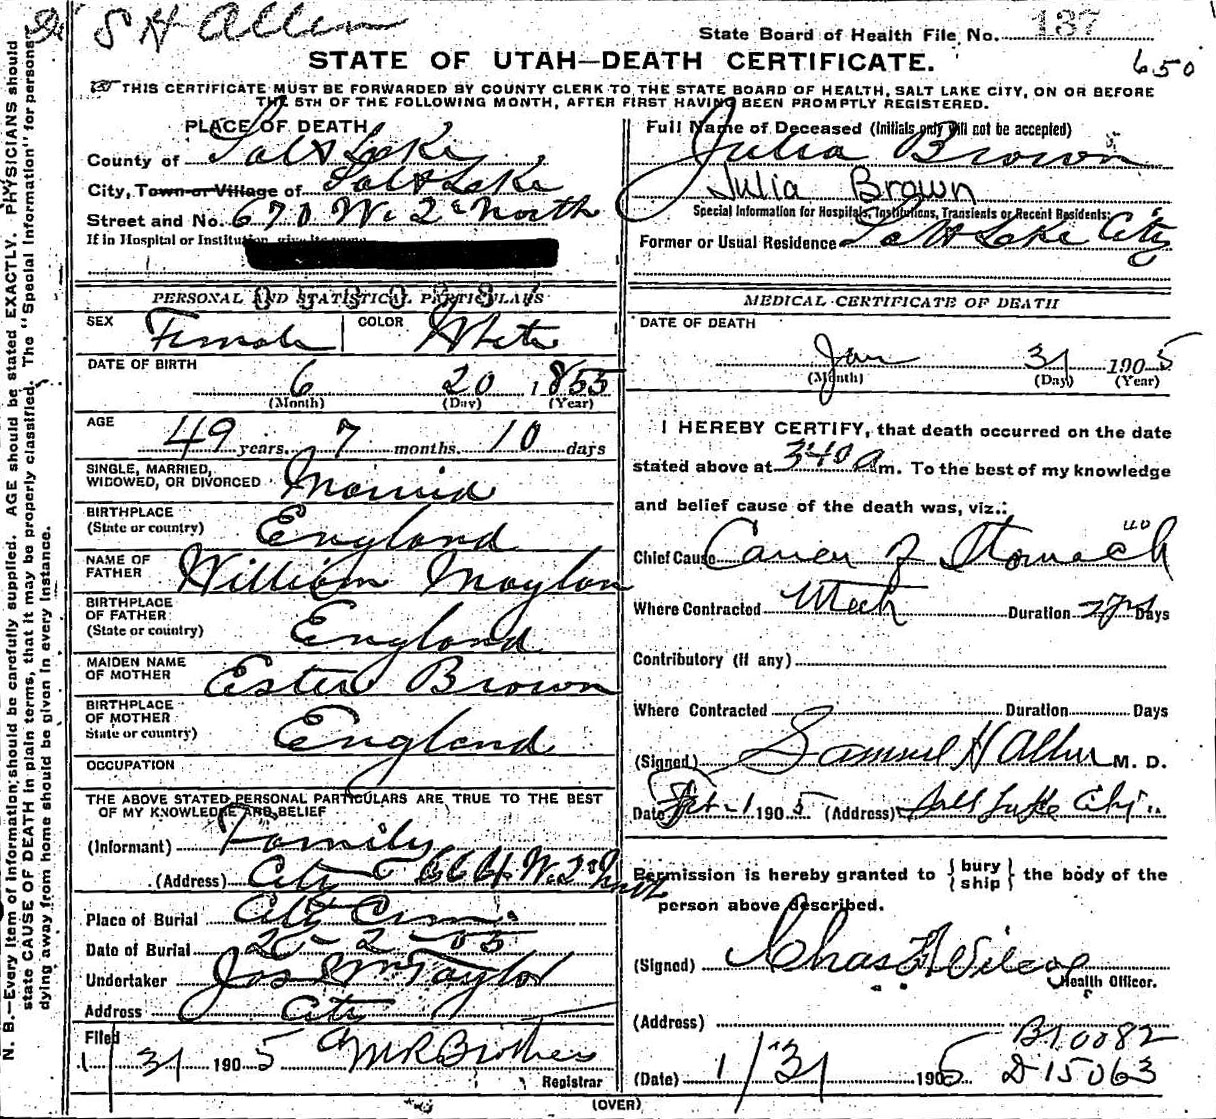 S H Allen
State Board of Health File No. 137
650
STATE OF UTAH—DEATH CERTIFICATE.
THIS CERTIFICATE MUST BE FORWARDED BY COUNTY CLERK TO THE STATE BOARD OF HEALTH, SALT LAKE CITY, ON OR BEFORE
THE 5TH OF THE FOLLOWING MONTH, AFTER FIRST HAVING BEEN PROMPTLY REGISTERED.
PLACE OF DEATH
County of Salt Lake
City, Town or Village of Salt Lake
Street and No. 670 W. 2d North
If in Hospital or Institution, give its name
PERSONAL AND STATISTICAL PARTICULARS
SEX Female COLOR White
DATE OF BIRTH
6 20 1855
(Month) (Day) (Year)
AGE
49 years. 7 months. 10 days
SINGLE, MARRIED,
WIDOWED, OR DIVORCED Married
BIRTHPLACE
(State or country) England
NAME OF
FATHER William Moylan
BIRTHPLACE
OF FATHER
(State or country) England
MAIDEN NAME
OF MOTHER Ester Brown
BIRTHPLACE
OF MOTHER
State or country) England
OCCUPATION
THE ABOVE STATED PERSONAL PARTICULARS ARE TRUE TO THE BEST
OF MY KNOWLEDGE AND BELIEF
(Informant) Family
(Address) City 664 W. 2d North
Place of Burial City Cem.
Date of Burial 2-2-05
Undertaker Jos Wm Taylor
Address City
Filed
1/31 1905 M R Brothers
Registrar
Full Name of Deceased (Initials only will not be accepted)
Julia Brown
Julia Brown
Special Information for Hospitals, Institutions, Transients or Recent Residents:
Former or Usual Residence Salt Lake City
MEDICAL CERTIFICATE OF DEATH
DATE OF DEATH
Jan 31 1905
(Month) (Day) (Year)
I HEREBY CERTIFY, that death occurred on the date
stated above at 340 a m. To the best of my knowledge
and belief cause of the death was, viz.:
Chief Cause Cancer of Stomach
Where Contracted Utah Duration 2 yrs Days
Contributory (if any)
Where Contracted Duration Days
(Signed) Samuel H Allen M. D.
Date Feb-1 1905 (Address) Salt Lake City
Permission is hereby granted to { bury ship } the body of the
person above described.
(Signed) Chas F Wilcox
Health Officer.
(Address)
B10082
(Date) 1/31 1905 D15063
(OVER)
N. B.—Every item of information should be carefully supplied. AGE should be stated EXACTLY. PHYSICIANS should
state CAUSE OF DEATH in plain terms, that it may be properly classified. The "Special Information" for persons
dying away from home should be given in every instance.